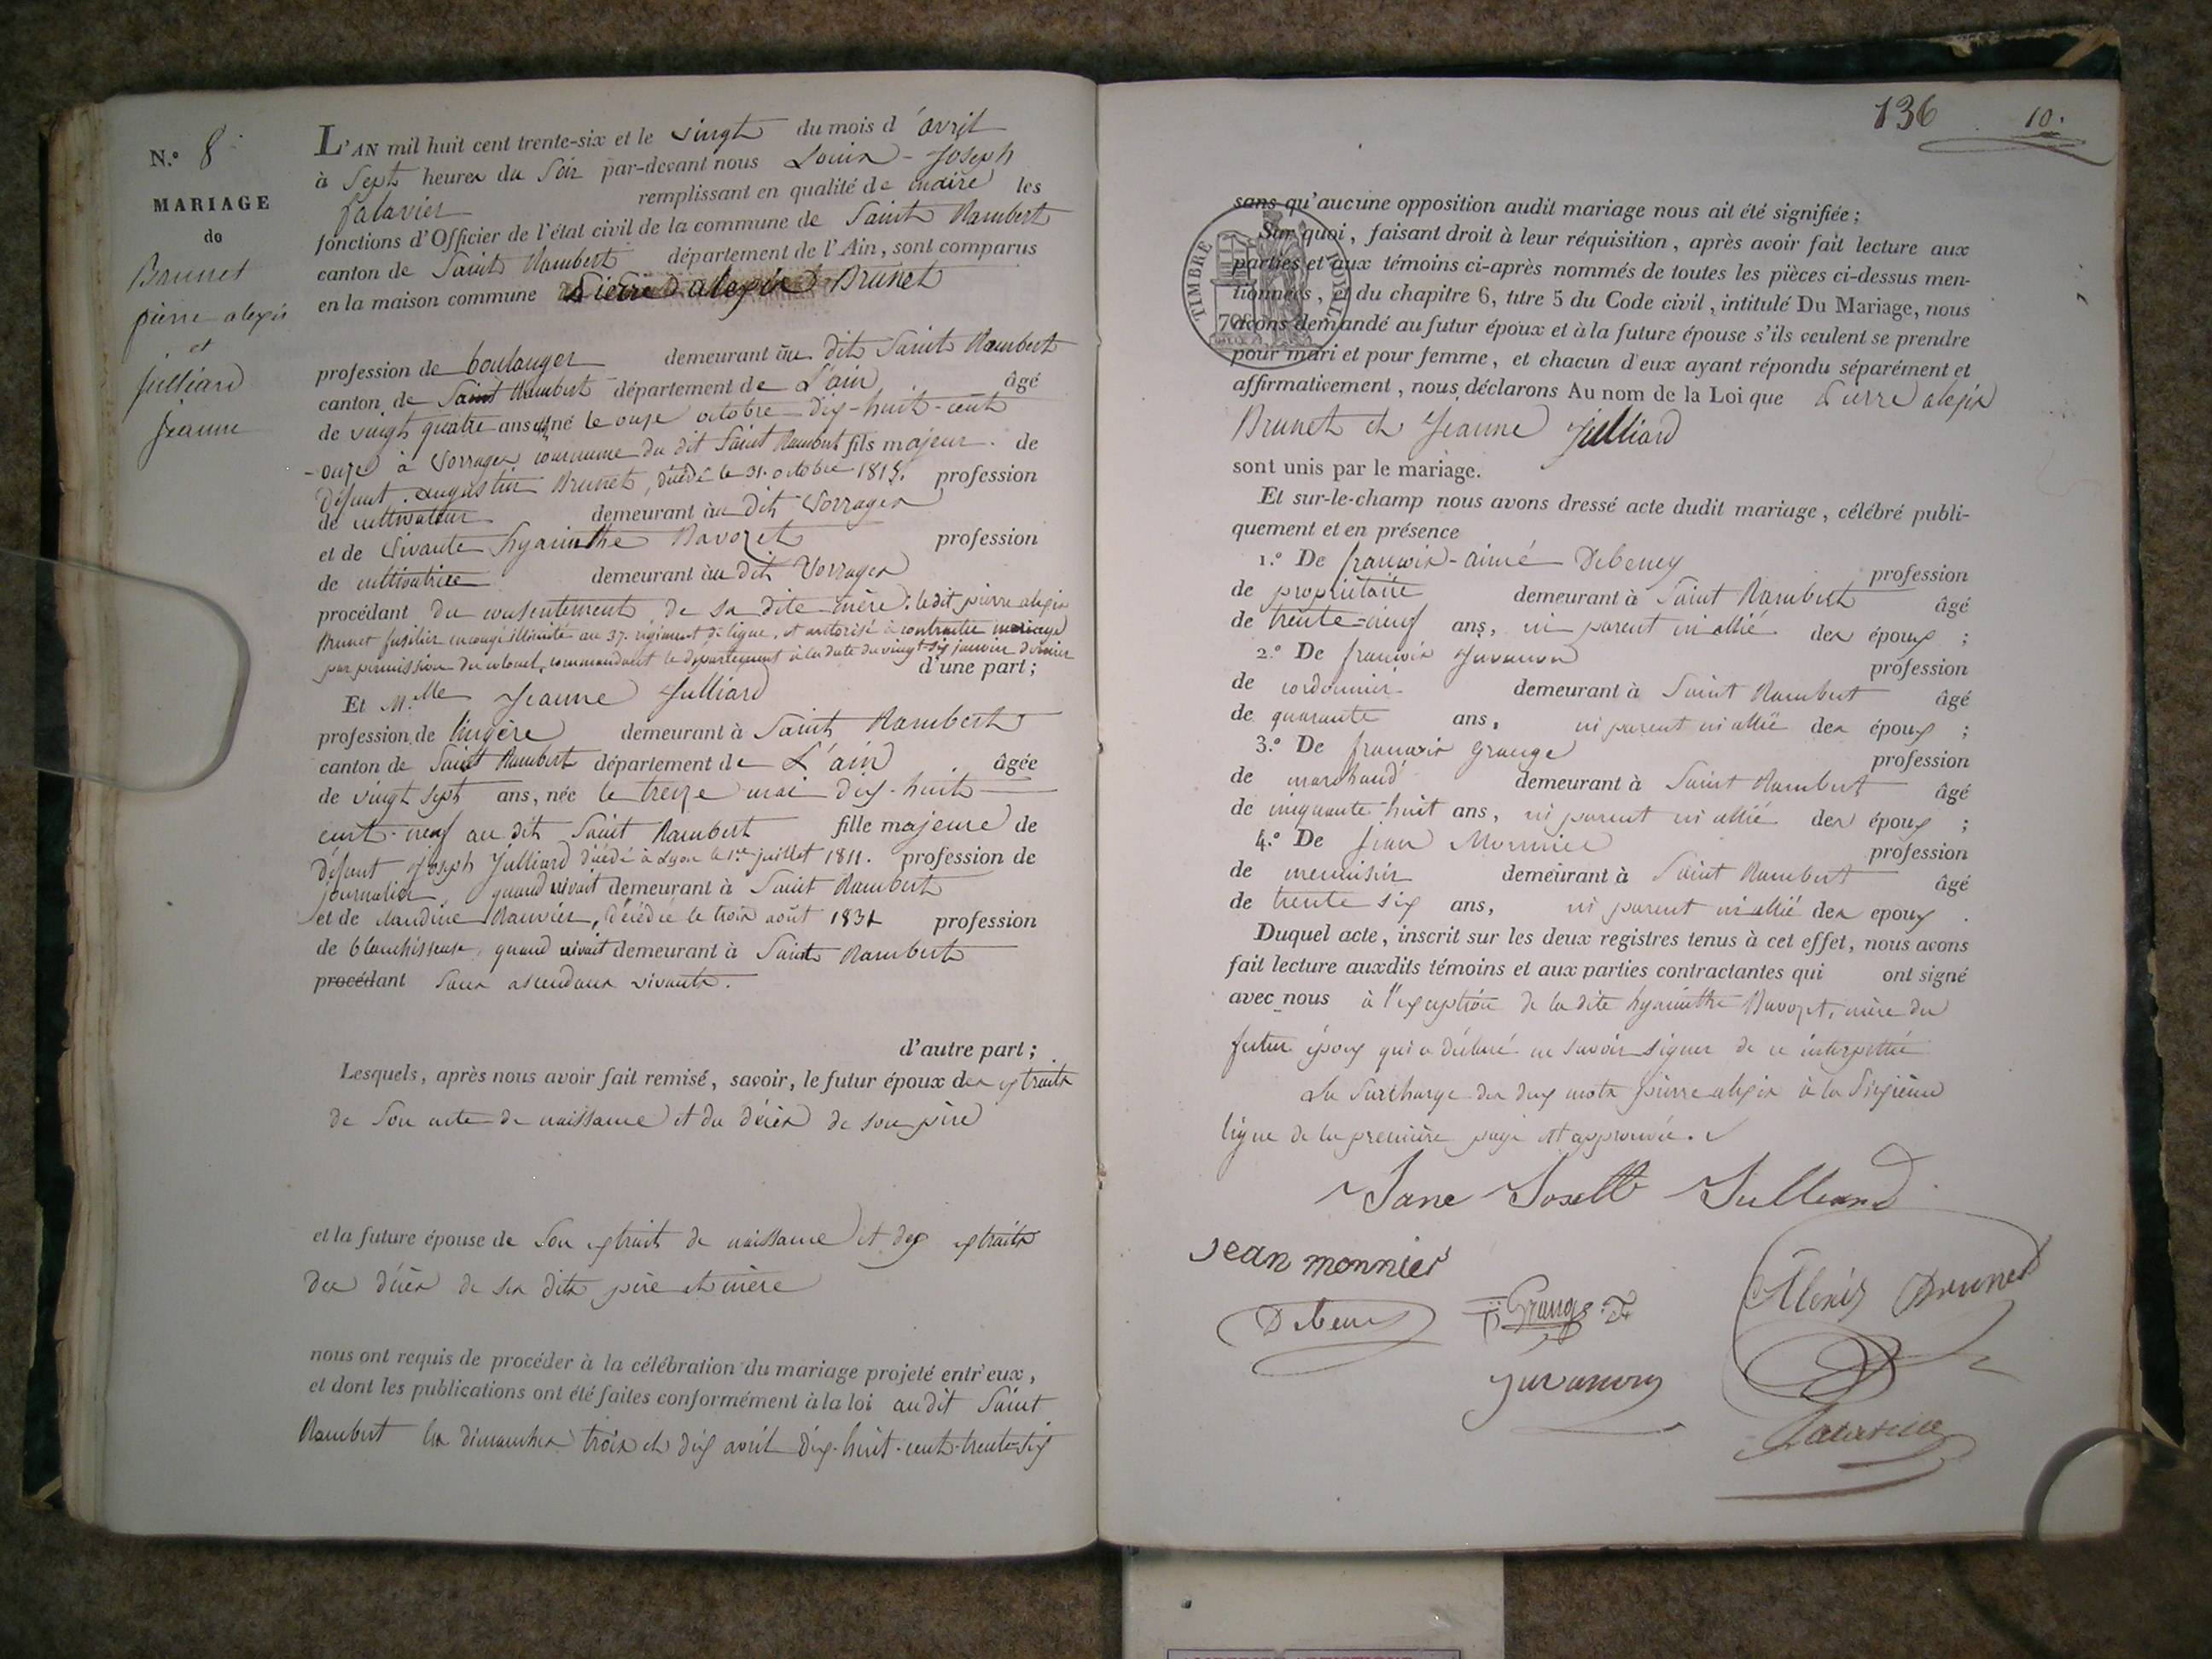 N.º 8
MARIAGE
de
Brunet
pierre alexis
et
Julliard
jeanne
L'AN mil huit cent trente-six et le vingt du mois d'avril
à Sept heures du Soir par-devant nous Louis-Joseph
falavier remplissant en qualité de maire les
fonctions d'Officier de l'état civil de la commune de Saint Rambert
canton de Saint Rambert département de l'Ain, sont comparus
en la maison commune Pierre alexis Brunet
profession de boulanger demeurant au dit Saint Rambert
canton de Saint Rambert département de L'ain âgé
de vingt quatre ans né le onze octobre dix-huit-cent
-onze à Vorrages commune du dit Saint Rambert fils majeur de
Défunt augustin Brunet, décédé le 31. octobre 1815. profession
de cultivateur demeurant au dit Vorrages
et de vivante hyacinthe Ravozet profession
de cultivatrice demeurant au dit Vorrages
procédant du consentement de sa dite mère. le dit pierre alexis
Brunet fusilier en congé illimité au 37. régiment de ligne, et autorisé à contracter mariage
par permission du colonel, commandant le département à la date du vingt-six janvier dernier
d'une part;
Et M.lle Jeanne Julliard
profession de lingère demeurant à Saint Rambert
canton de Saint Rambert département de L'ain âgée
de vingt sept ans, née le treize mai dix-huit
cent-neuf au dit Saint Rambert fille majeure de
Défunt joseph Julliard décédé à Lyon le 1.er juillet 1811. profession de
journalier, quand vivait demeurant à Saint Rambert
et de claudine Ranvier, décédée le trois août 1831 profession
de blanchisseuse, quand vivait demeurant à Saint Rambert
procédant sans ascendans vivants.
d'autre part;
Lesquels, après nous avoir fait remise, savoir, le futur époux des extraits
de Son acte de naissance et du décès de son père
et la future épouse de Son extrait de naissance et des extraits
des décès de ses dits père et mère
nous ont requis de procéder à la célébration du mariage projeté entr'eux,
et dont les publications ont été faites conformément à la loi audit Saint
Rambert les dimanches trois et dix avril dix-huit-cent-trente-six
136 10.
sans qu'aucune opposition audit mariage nous ait été signifiée;
Sur quoi, faisant droit à leur réquisition, après avoir fait lecture aux
parties et aux témoins ci-après nommés de toutes les pièces ci-dessus men-
tionnées, et du chapitre 6, titre 5 du Code civil, intitulé Du Mariage, nous
avons demandé au futur époux et à la future épouse s'ils veulent se prendre
pour mari et pour femme, et chacun d'eux ayant répondu séparément et
affirmativement, nous déclarons Au nom de la Loi que Pierre alexis
Brunet et Jeanne Julliard
sont unis par le mariage.
TIMBRE ROYAL
70c
Et sur-le-champ nous avons dressé acte dudit mariage, célébré publi-
quement et en présence
1.º De françois-aimé Debeney profession
de propriétaire demeurant à Saint Rambert âgé
de trente-neuf ans, ni parent ni allié des époux;
2.º De françois Juvanon profession
de cordonnier demeurant à Saint Rambert âgé
de quarante ans, ni parent ni allié des époux;
3.º De françois grange profession
de marchand demeurant à Saint Rambert âgé
de cinquante-huit ans, ni parent ni allié des époux;
4.º De jean Monnier profession
de menuisier demeurant à Saint Rambert âgé
de trente six ans, ni parent ni allié des epoux.
Duquel acte, inscrit sur les deux registres tenus à cet effet, nous avons
fait lecture auxdits témoins et aux parties contractantes qui ont signé
avec nous à l'exception de la dite hyacinthe Ravozet, mère du
futur époux qui a déclaré ne savoir signer de ce interpellée
La Surcharge des deux mots pierre alexis à la Sixième
ligne de la première page est approuvée.
Jane Josett Julliard
Jean monnier
Debeney
Grange
Alexis Brunet
Juvanon
falavier